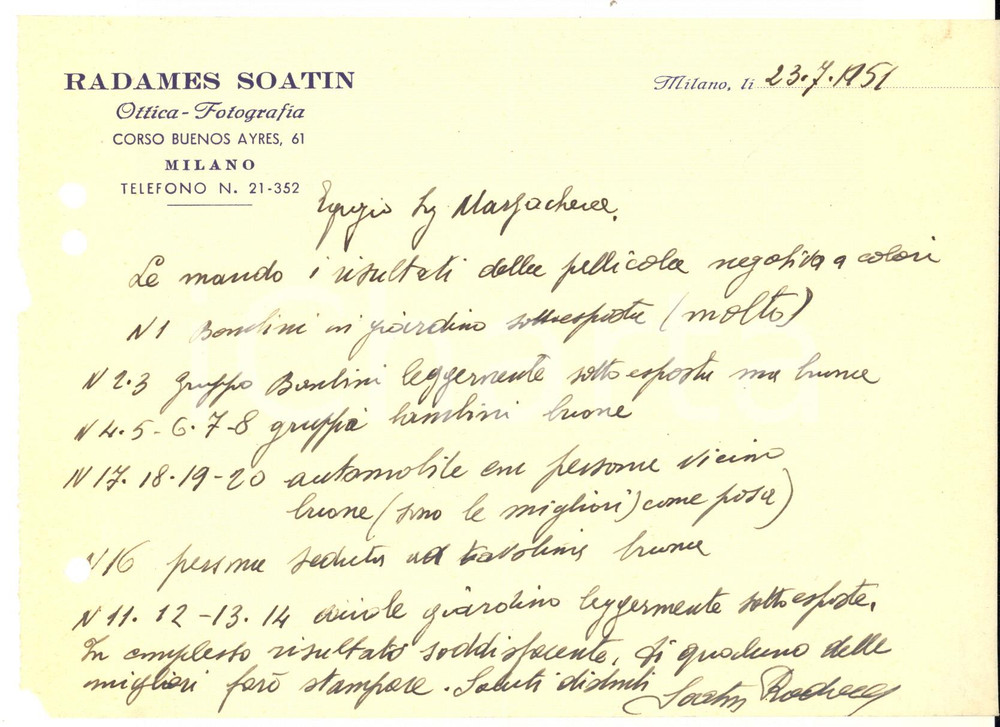 RADAMES SOATIN
Ottica - Fotografia
CORSO BUENOS AYRES, 61
MILANO
TELEFONO N. 21-352
Milano, li 23.7.1951
Egregio Sig
Le mando i risultati della pellicola negativa a colori
N 1 Bambini in giardino sottoesposta (molto)
N 2.3 gruppo Bambini leggermente sottoesposta ma buone
N 4.5-6.7-8 gruppi bambini buone
N 17.18.19-20 automobile con persone vicino
buone (sono le migliori) come posa)
N 16 persone sedute ad tavolino buone
N 11.12-13.14 giardino leggermente sottoesposte.
In complesso risultato soddisfacente, di qualcuno delle
migliori farò stampare. Saluti distinti
Soatin Radames
iChorta